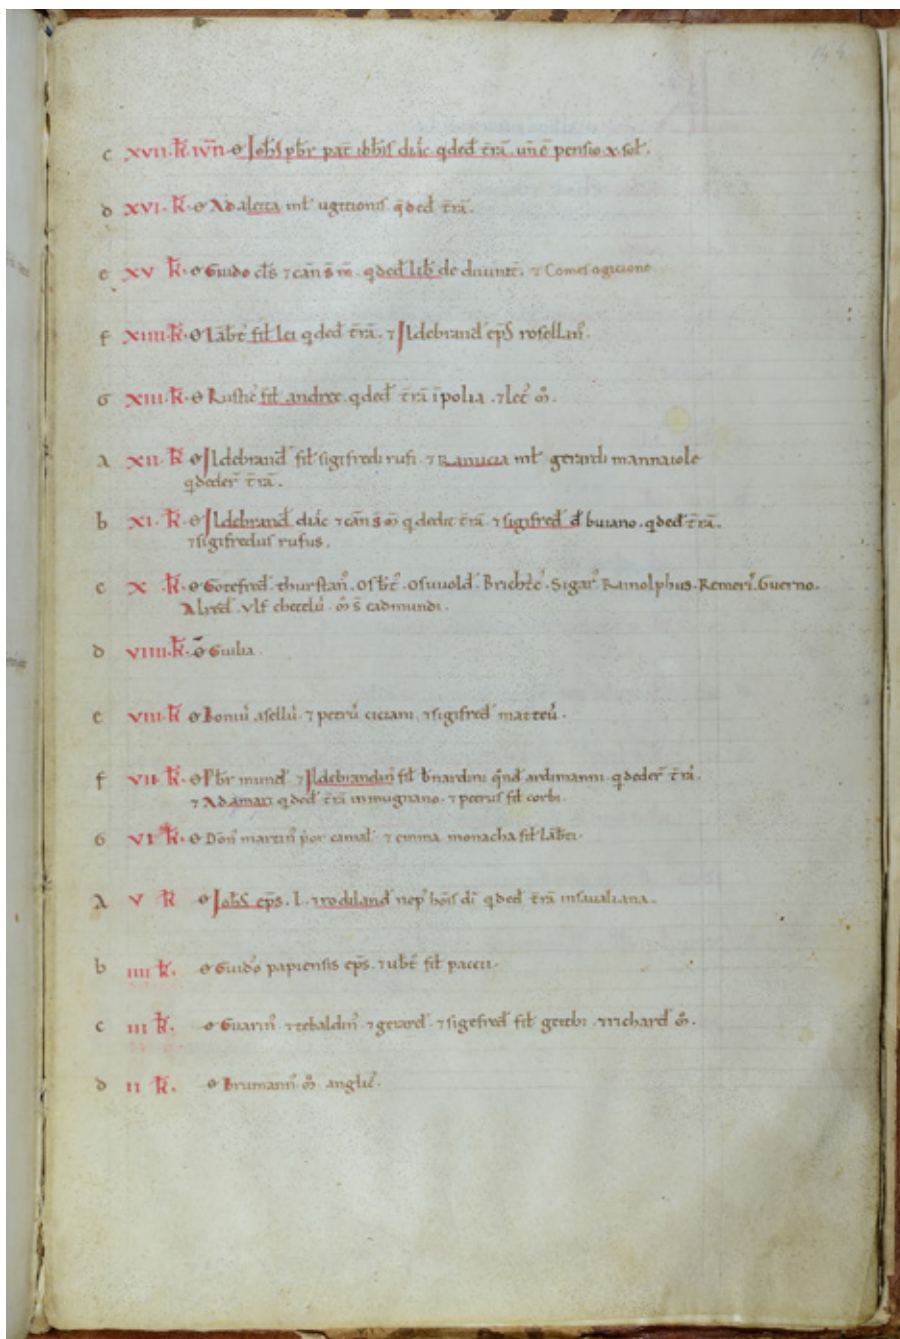 c XVII. k̄. ivn̄ Θ Joh̄s pb̄r pat̄ ibb̄is diāc qded̄ t̄rā. un̄ ē pensio x. sol̄.
d XVI. k̄. Θ Adaleita ml̄ ugicionis q̄ded̄ t̄rā.
e XV k̄. Θ Guido cl̄s ⁊ cañ s̄ m̄. qded̄ lib̄ de diuint̄. ⁊ Comes ogicione
f XIIII. k̄. Θ Lāb̄t᾿ fil̄ lei qded̄ t̄rā. ⁊ Jldebrand᾿ ep̄s rosellan᾿.
G XIII. k̄. Θ Rustic᾿ fil̄ andree. qded̄ t̄rā īpolia. ⁊ lec᾿ m̊.
A XII. k̄ Θ Jldebrand̄ fil̄ sigifredi rufi. ⁊ Ranucia ml̄ gerardi mannaiole
qdeder̄ t̄rā.
b XI. k̄. Θ Jldebrand̄ diāc ⁊ cañ s̄ m̄ qdedit t̄rā. ⁊ sigifred̄ d̄ buiano. qded̄ t̄rā.
⁊ sigifredus rufus.
c X k̄. Θ Gotefred̄. thurstan᾿. Osb̄t᾿. Osuuold᾿. Bricht᾿. Sigar᾿. Ramolphus. Remeri᾿. Guerno.
Alred̄. Vlf chetelū᾿. m̊ s̄ eadmundi.
d VIIII. k̄. Θ Guilia.
e VIII. k̄ Θ Boniū᾿ asellū᾿. ⁊ petrū᾿ ciciani. ⁊ sigifred̄ matteū᾿.
f VII. k̄. Θ Pb̄r mund᾿ ⁊ Jldebrandin᾿ fil̄ b̄nardini q̄nd̄ ardimanni. qdeder̄ t̄rā.
⁊ Adamari qded̄ t̄rā inmugnano. ⁊ petrus fil̄ corbi.
G VI k̄. Θ Don᾿ martin᾿ p̄or camal̄. ⁊ emma monacha fil̄ lāb̄ti.
A V k̄ Θ Joh̄s ep̄s. l. ⁊ rodiland̄ nep᾿ hōis dī qded̄ t̄rā insaualiana.
b IIII k̄. Θ Guido papiensis ep̄s. ⁊ ub̄t᾿ fil̄ paccii.
c III k̄. Θ Guarin᾿. ⁊ tebaldin᾿. ⁊ gerard᾿. ⁊ sigefred᾿ fil̄ gerbi. ⁊ richard᾿ m̊.
d II k̄. Θ Brumann᾿. m̊. anglic᾿.